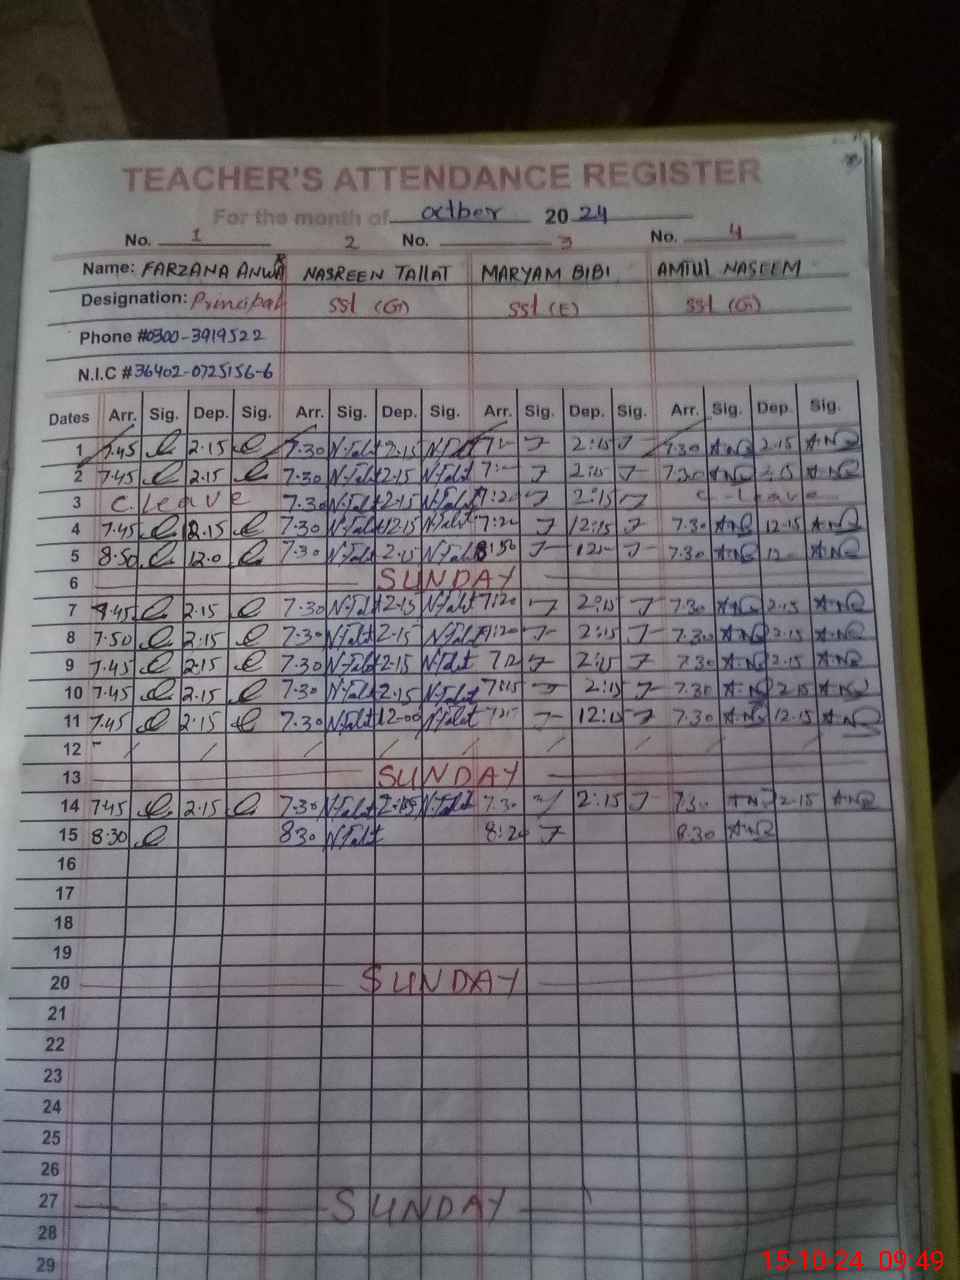 TEACHER'S ATTENDANCE REGISTER
For the month of octber 20 24
No. 1 2 No. 3 No. 4
Name: FARZANA ANWAR NASREEN TALLAT MARYAM BIBI AMTUL NASEEM
Designation: Principal SSt (G) SSt (E) SSt (G)
Phone #0300-3919522
N.I.C #36402-0725156-6
Dates Arr. Sig. Dep. Sig. Arr. Sig. Dep. Sig. Arr. Sig. Dep. Sig. Arr. Sig. Dep. Sig.
1 7.45 2.15 7.30 N.Talat 2.15 N.Talat 2:15 7.30 A.N 2.15 A.N
2 7.45 2.15 7.30 N.Talat 2.15 N.Talat 2:15 7.30 A.N A.N
3 C. Leave 7.30 N.Talat 2.15 N.Talat 7:20 2:15 C. Leave
4 7.45 12.15 7.30 N.Talat 12.15 N.Talat 7:20 12:15 7.30 A.N 12.15 A.N
5 8.50 12.0 7.30 N.Talat 2.15 N.Talat 8:50 7.30 A.N A.N
6 SUNDAY
7 7.45 2.15 7.30 N.Talat 2.15 N.Talat 7:20 2:15 7.30 A.N 2.15 A.N
8 7.50 2.15 7.30 N.Talat 2.15 N.Talat 7:20 2:15 7.30 A.N 2.15 A.N
9 7.45 2.15 7.30 N.Talat 2.15 N.Talat 2:15 7.30 A.N 2.15 A.N
10 7.45 2.15 7.30 N.Talat 2.15 N.Talat 7:15 2:15 7.30 A.N 2.15 A.N
11 7.45 2.15 7.30 N.Talat 12-00 N.Talat 12:15 7.30 A.N 12.15 A.N
12
13 SUNDAY
14 7.45 2.15 7.30 N.Talat 2.15 N.Talat 7.30 2:15 7.30 A.N 2.15 A.N
15 8.30 8.30 N.Talat 8:20 8.30 A.N
16
17
18
19
20 SUNDAY
21
22
23
24
25
26
27 SUNDAY
28
29
15-10-24 09:49